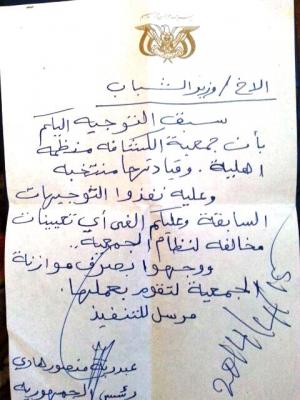 الاخ / وزير الشباب
سبق التوجيه اليكم
بأن جمعية الكشافه منظمه
اهلية . وقيادتها منتخبه
وعليه نفذوا التوجيهات
السابقة وعليكم الغى أي تعيينات
مخالفه لنظام الجمعية ..
ووجهوا بصرف موازنة
الجمعية لتقوم بعملها
مرسل للتنفيذ
عبدربه منصور هادي
رئيس الجمهوريه